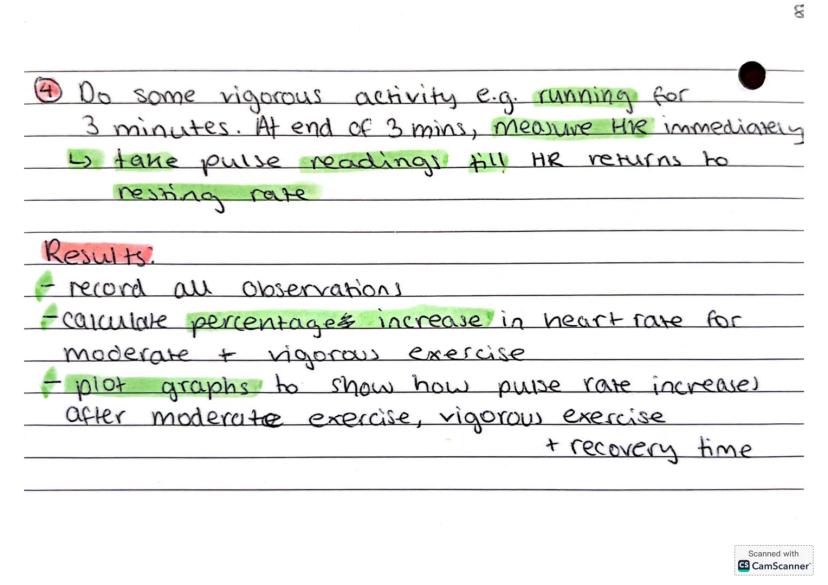 8
④ Do some vigorous activity e.g. running for
3 minutes. At end of 3 mins, measure HR immediately
↳ take pulse readings till HR returns to
resting rate
Results:
- record all observations
- calculate percentage increase in heart rate for
moderate + vigorous exercise
- plot graphs to show how pulse rate increases
after moderate exercise, vigorous exercise
+ recovery time
Scanned with
CS CamScanner